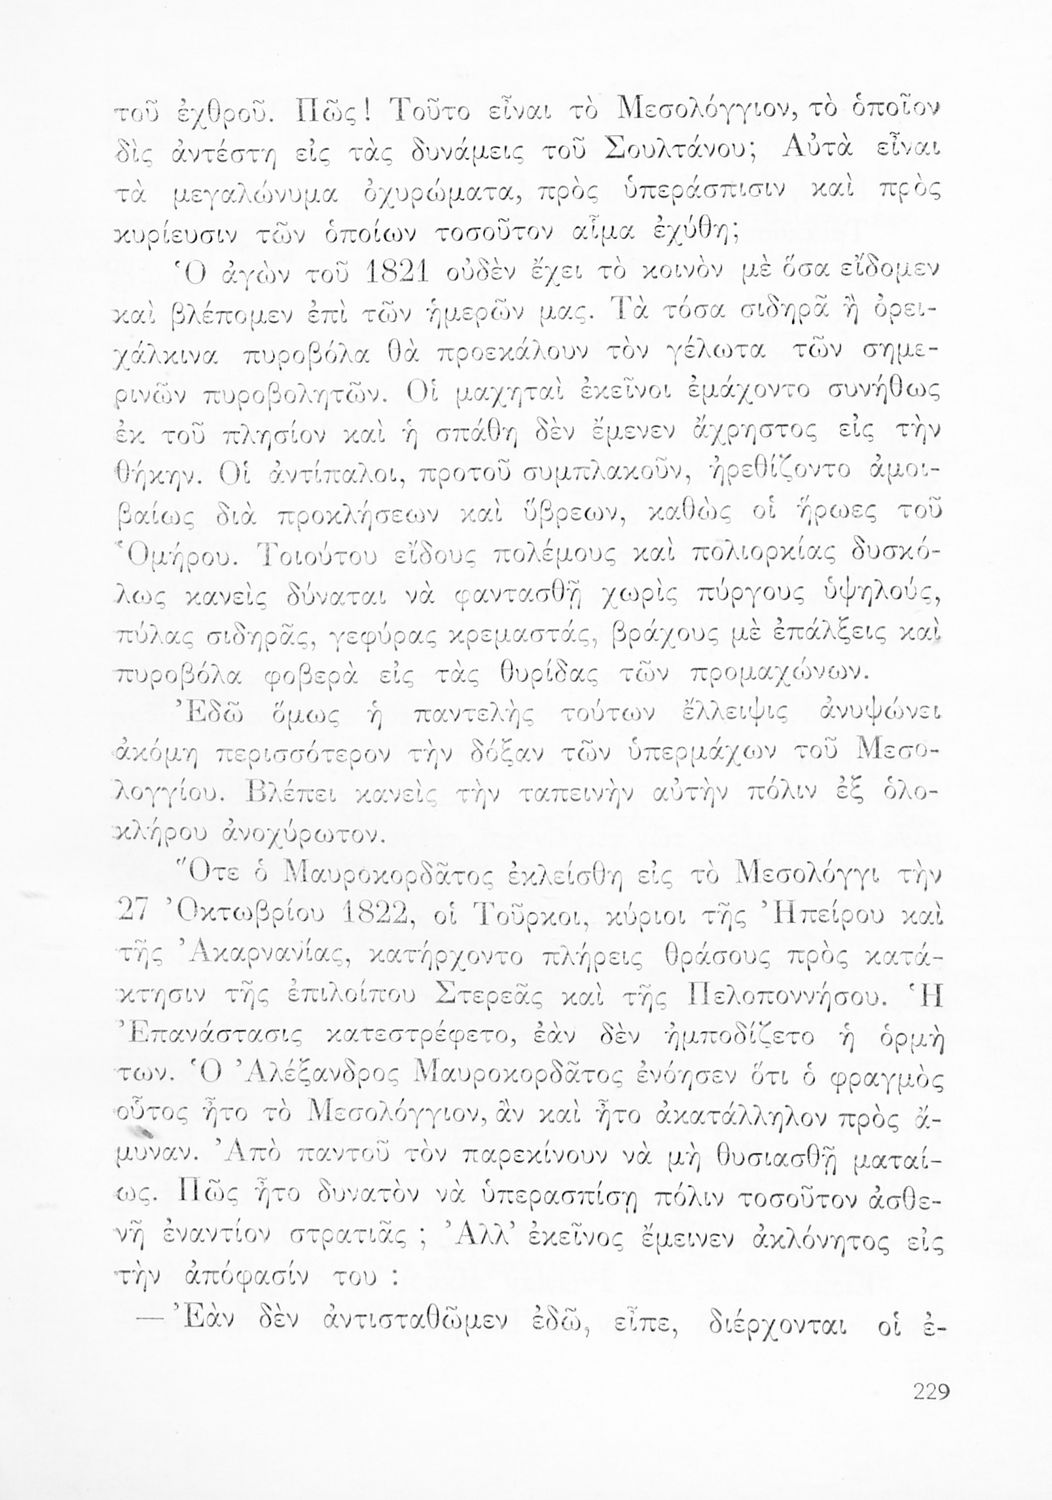 τοῦ ἐχθροῦ. Πῶς! Τοῦτο εἶναι τὸ Μεσολόγγιον, τὸ ὁποῖον
δὶς ἀντέστη εἰς τὰς δυνάμεις τοῦ Σουλτάνου; Αὐτὰ εἶναι
τὰ μεγαλώνυμα ὀχυρώματα, πρὸς ὑπεράσπισιν καὶ πρὸς
κυρίευσιν τῶν ὁποίων τοσοῦτον αἷμα ἐχύθη;
Ὁ ἀγὼν τοῦ 1821 οὐδὲν ἔχει τὸ κοινὸν μὲ ὅσα εἴδομεν
καὶ βλέπομεν ἐπὶ τῶν ἡμερῶν μας. Τὰ τόσα σιδηρᾶ ἢ ὀρει-
χάλκινα πυροβόλα θὰ προεκάλουν τὸν γέλωτα τῶν σημε-
ρινῶν πυροβολητῶν. Οἱ μαχηταὶ ἐκεῖνοι ἐμάχοντο συνήθως
ἐκ τοῦ πλησίον καὶ ἡ σπάθη δὲν ἔμενεν ἄχρηστος εἰς τὴν
θήκην. Οἱ ἀντίπαλοι, προτοῦ συμπλακοῦν, ἠρεθίζοντο ἀμοι-
βαίως διὰ προκλήσεων καὶ ὕβρεων, καθὼς οἱ ἥρωες τοῦ
Ὁμήρου. Τοιούτου εἴδους πολέμους καὶ πολιορκίας δυσκό-
λως κανεὶς δύναται νὰ φαντασθῇ χωρὶς πύργους ὑψηλούς,
πύλας σιδηρᾶς, γεφύρας κρεμαστάς, βράχους μὲ ἐπάλξεις καὶ
πυροβόλα φοβερὰ εἰς τὰς θυρίδας τῶν προμαχώνων.
Ἐδῶ ὅμως ἡ παντελὴς τούτων ἔλλειψις ἀνυψώνει
ἀκόμη περισσότερον τὴν δόξαν τῶν ὑπερμάχων τοῦ Μεσο-
λογγίου. Βλέπει κανεὶς τὴν ταπεινὴν αὐτὴν πόλιν ἐξ ὁλο-
κλήρου ἀνοχύρωτον.
Ὅτε ὁ Μαυροκορδᾶτος ἐκλείσθη εἰς τὸ Μεσολόγγι τὴν
27 Ὀκτωβρίου 1822, οἱ Τοῦρκοι, κύριοι τῆς Ἠπείρου καὶ
τῆς Ἀκαρνανίας, κατήρχοντο πλήρεις θράσους πρὸς κατά-
κτησιν τῆς ἐπιλοίπου Στερεᾶς καὶ τῆς Πελοποννήσου. Ἡ
Ἐπανάστασις κατεστρέφετο, ἐὰν δὲν ἠμποδίζετο ἡ ὁρμὴ
των. Ὁ Ἀλέξανδρος Μαυροκορδᾶτος ἐνόησεν ὅτι ὁ φραγμὸς
οὗτος ἦτο τὸ Μεσολόγγιον, ἂν καὶ ἦτο ἀκατάλληλον πρὸς ἄ-
μυναν. Ἀπὸ παντοῦ τὸν παρεκίνουν νὰ μὴ θυσιασθῇ ματαί-
ως. Πῶς ἦτο δυνατὸν νὰ ὑπερασπίσῃ πόλιν τοσοῦτον ἀσθε-
νῆ ἐναντίον στρατιᾶς ; Ἀλλ’ ἐκεῖνος ἔμεινεν ἀκλόνητος εἰς
τὴν ἀπόφασίν του :
— Ἐὰν δὲν ἀντισταθῶμεν ἐδῶ, εἶπε, διέρχονται οἱ ἐ-
229